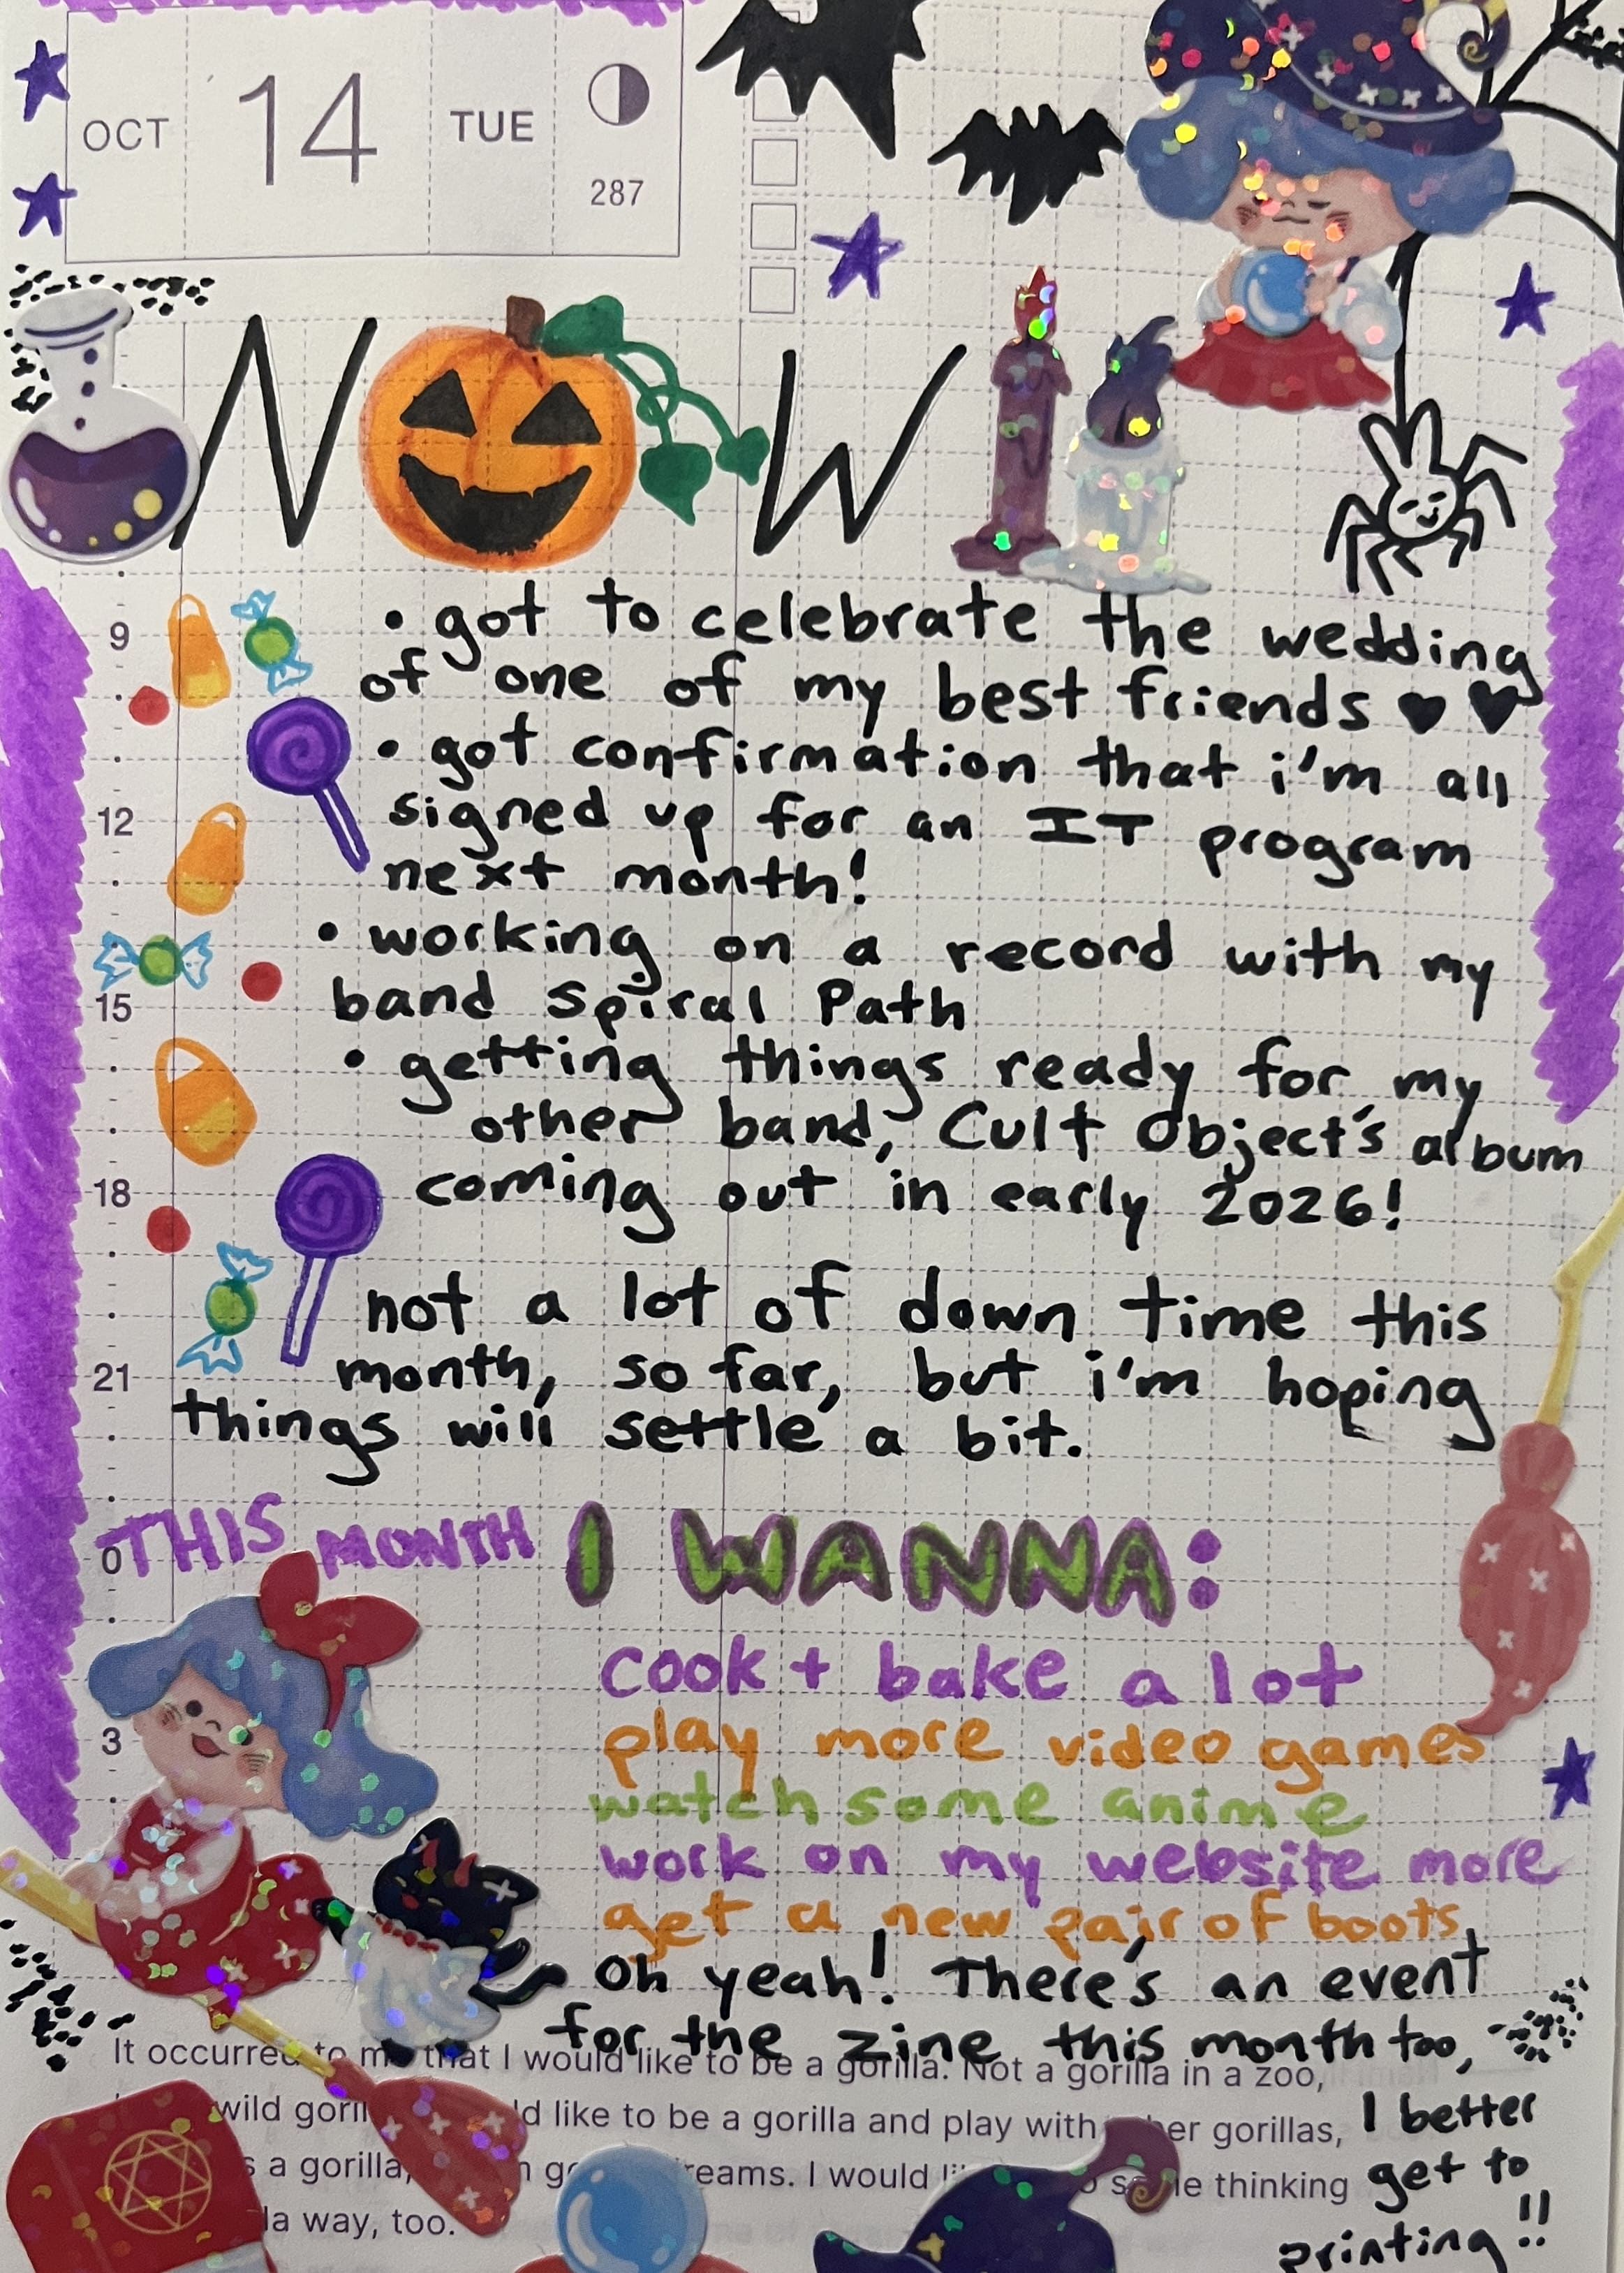 OCT 14 TUE
287
NOW
9
12
15
18
21
0
3
• got to celebrate the wedding
of one of my best friends ♥ ♥
• got confirmation that i'm all
signed up for an IT program
next month!
• working on a record with my
band Spiral Path
• getting things ready for my
other band, Cult Object's album
coming out in early 2026!
not a lot of down time this
month, so far, but i'm hoping
things will settle a bit.
THIS MONTH I WANNA:
cook + bake a lot
play more video games
watch some anime
work on my website more
get a new pair of boots
Oh yeah! There's an event
for the zine this month too,
I better
get to
printing!!
It occurred to me that I would like to be a gorilla. Not a gorilla in a zoo,
wild ld like to be a gorilla and play with gorillas,
a gorilla, I would thinking
way, too.